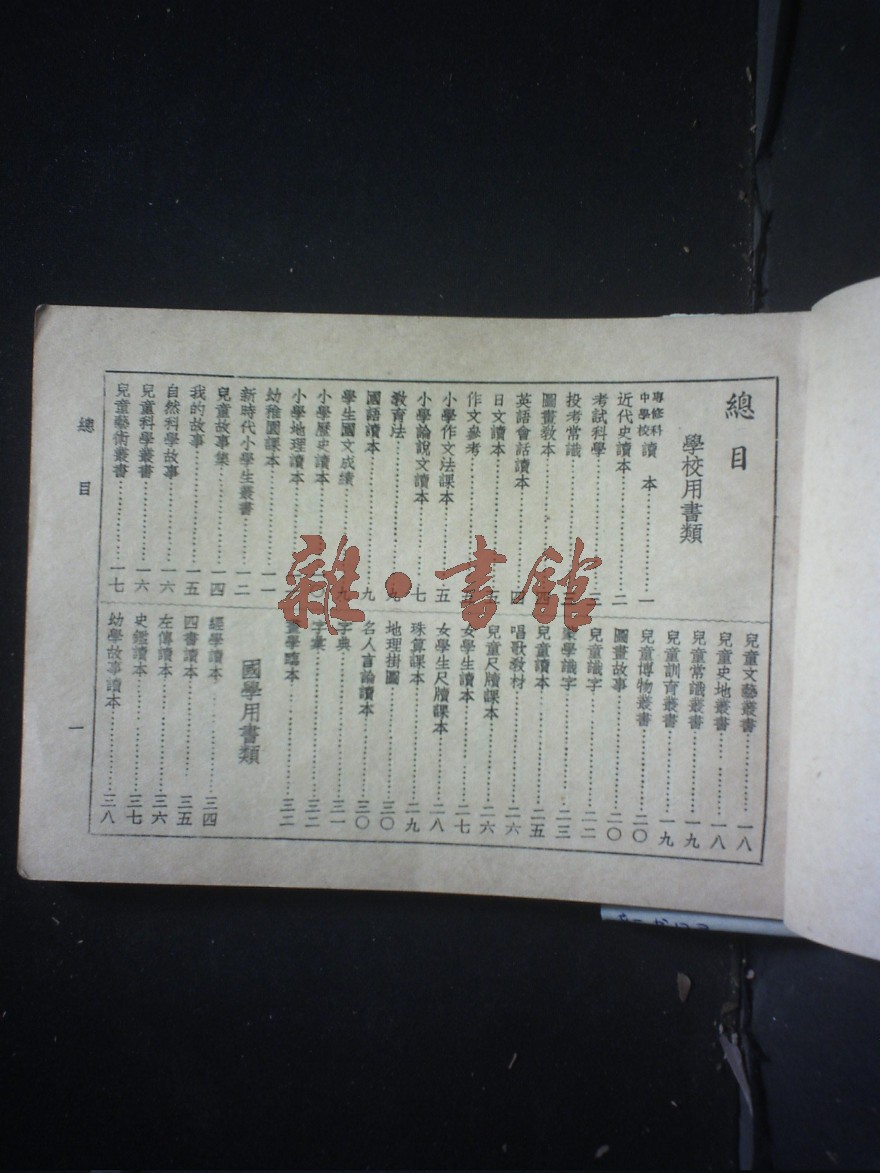 總目
學校用書類
專修科
中學校 讀本……一
近代史讀本……二
考試科學……三
投考常識
圖畫教本……四
英語會話讀本……四
日文讀本……五
作文參考
小學作文法課本……五
小學論說文讀本……七
教育法……九
國語讀本……九
學生國文成績……九
小學歷史讀本
小學地理讀本
幼稚園課本……一一
新時代小學生叢書……一二
兒童故事集……一四
我的故事……一五
自然科學故事……一六
兒童科學叢書……一六
兒童藝術叢書……一七
兒童文藝叢書……一八
兒童史地叢書……一八
兒童常識叢書……一九
兒童訓育叢書……一九
兒童博物叢書……二〇
圖畫故事……二〇
兒童識字……二二
蒙學識字……二三
兒童讀本……二五
唱歌教材……二六
兒童尺牘課本……二六
女學生讀本……二七
女學生尺牘課本……二八
珠算課本……二九
地理掛圖……三〇
名人言論讀本……三〇
字典……三一
字彙……三二
畫學臨本……三二
國學用書類
經學讀本……三四
四書讀本……三五
左傳讀本……三六
史鑑讀本……三七
幼學故事讀本……三八
總目
一
雜·書館